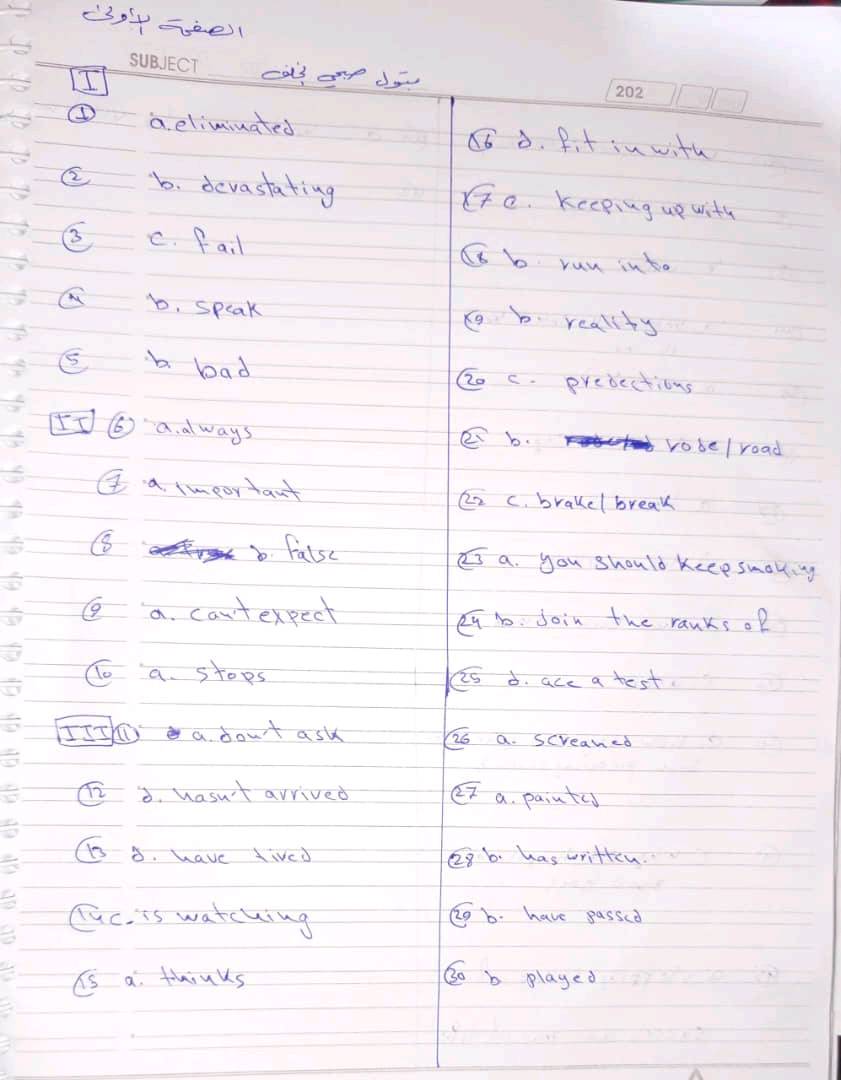 الصفحة الأولى
SUBJECT
بتول صبحي خلف
202
I
1 a. eliminated
2 b. devastating
3 c. fail
4 b. speak
5 b. bad
II 6 a. always
7 a. important
8 b. false
9 a. can't expect
10 a. stops
III 11 a. don't ask
12 d. hasn't arrived
13 d. have lived
14 c. is watching
15 a. thinks
16 d. fit in with
17 c. keeping up with
18 b. run into
19 b. reality
20 c. predections
21 b. rode / road
22 c. brake / break
23 a. you should keep smoking
24 b. Join the ranks of
25 d. ace a test.
26 a. screaned
27 a. painted
28 b. has written.
29 b. have passed
30 b played.